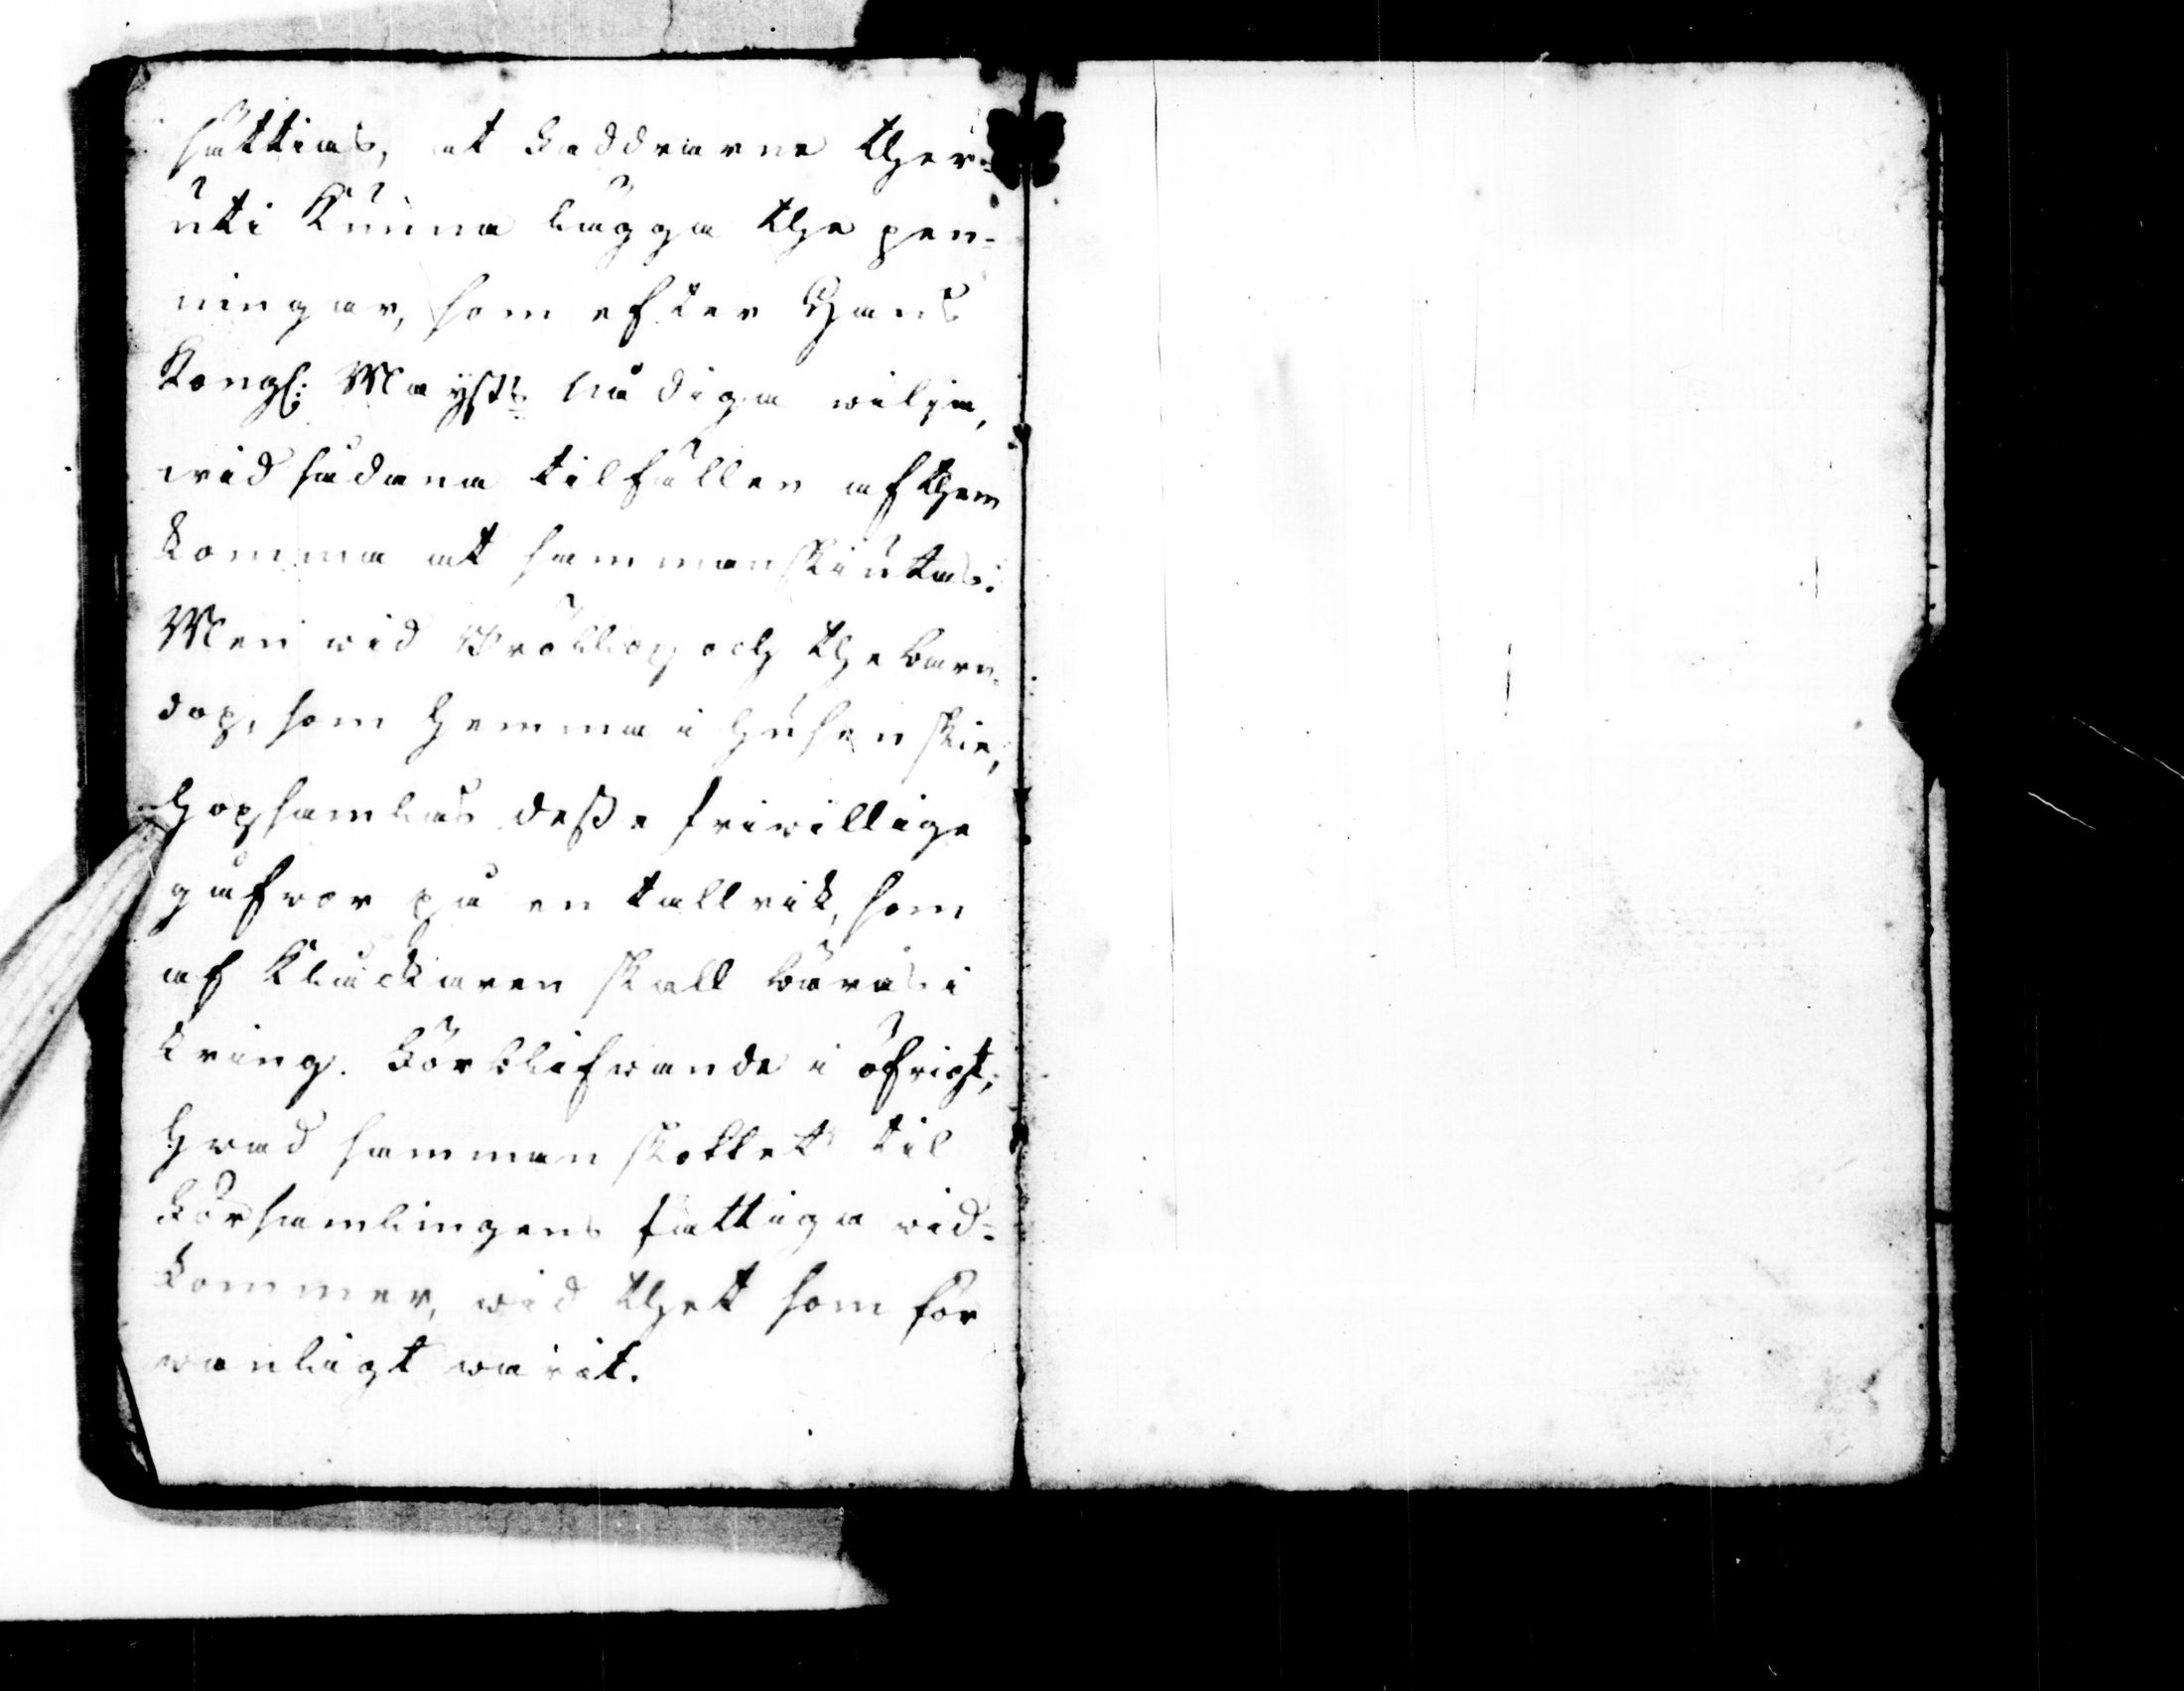 sättias, at Faddrarne ther=
uti kunna lägga the pen=
ningar, som efter Hans
Kongl: Mayts nådiga wilja,
wid sådana tilfällen af them
komma at sammanskiutas.
Men wid Bröllop och the barn=
dop, som hemma i husen skie,
hopsamlas desse friwillige
gåfwor på en tallrik, som
af Klåckaren skall bäras i
kring. Förblifwande i öfrigt,
hwad sammanskottet til
Församlingens fattiga wid=
kommer, wid thet som för
wanligt warit.